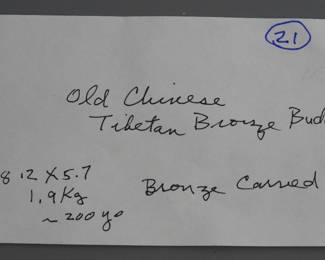 21
Old Chinese
Tibetan Bronze Bud
8.2 x 5.7
1.9 Kg
~ 200 yo
Bronze Carved